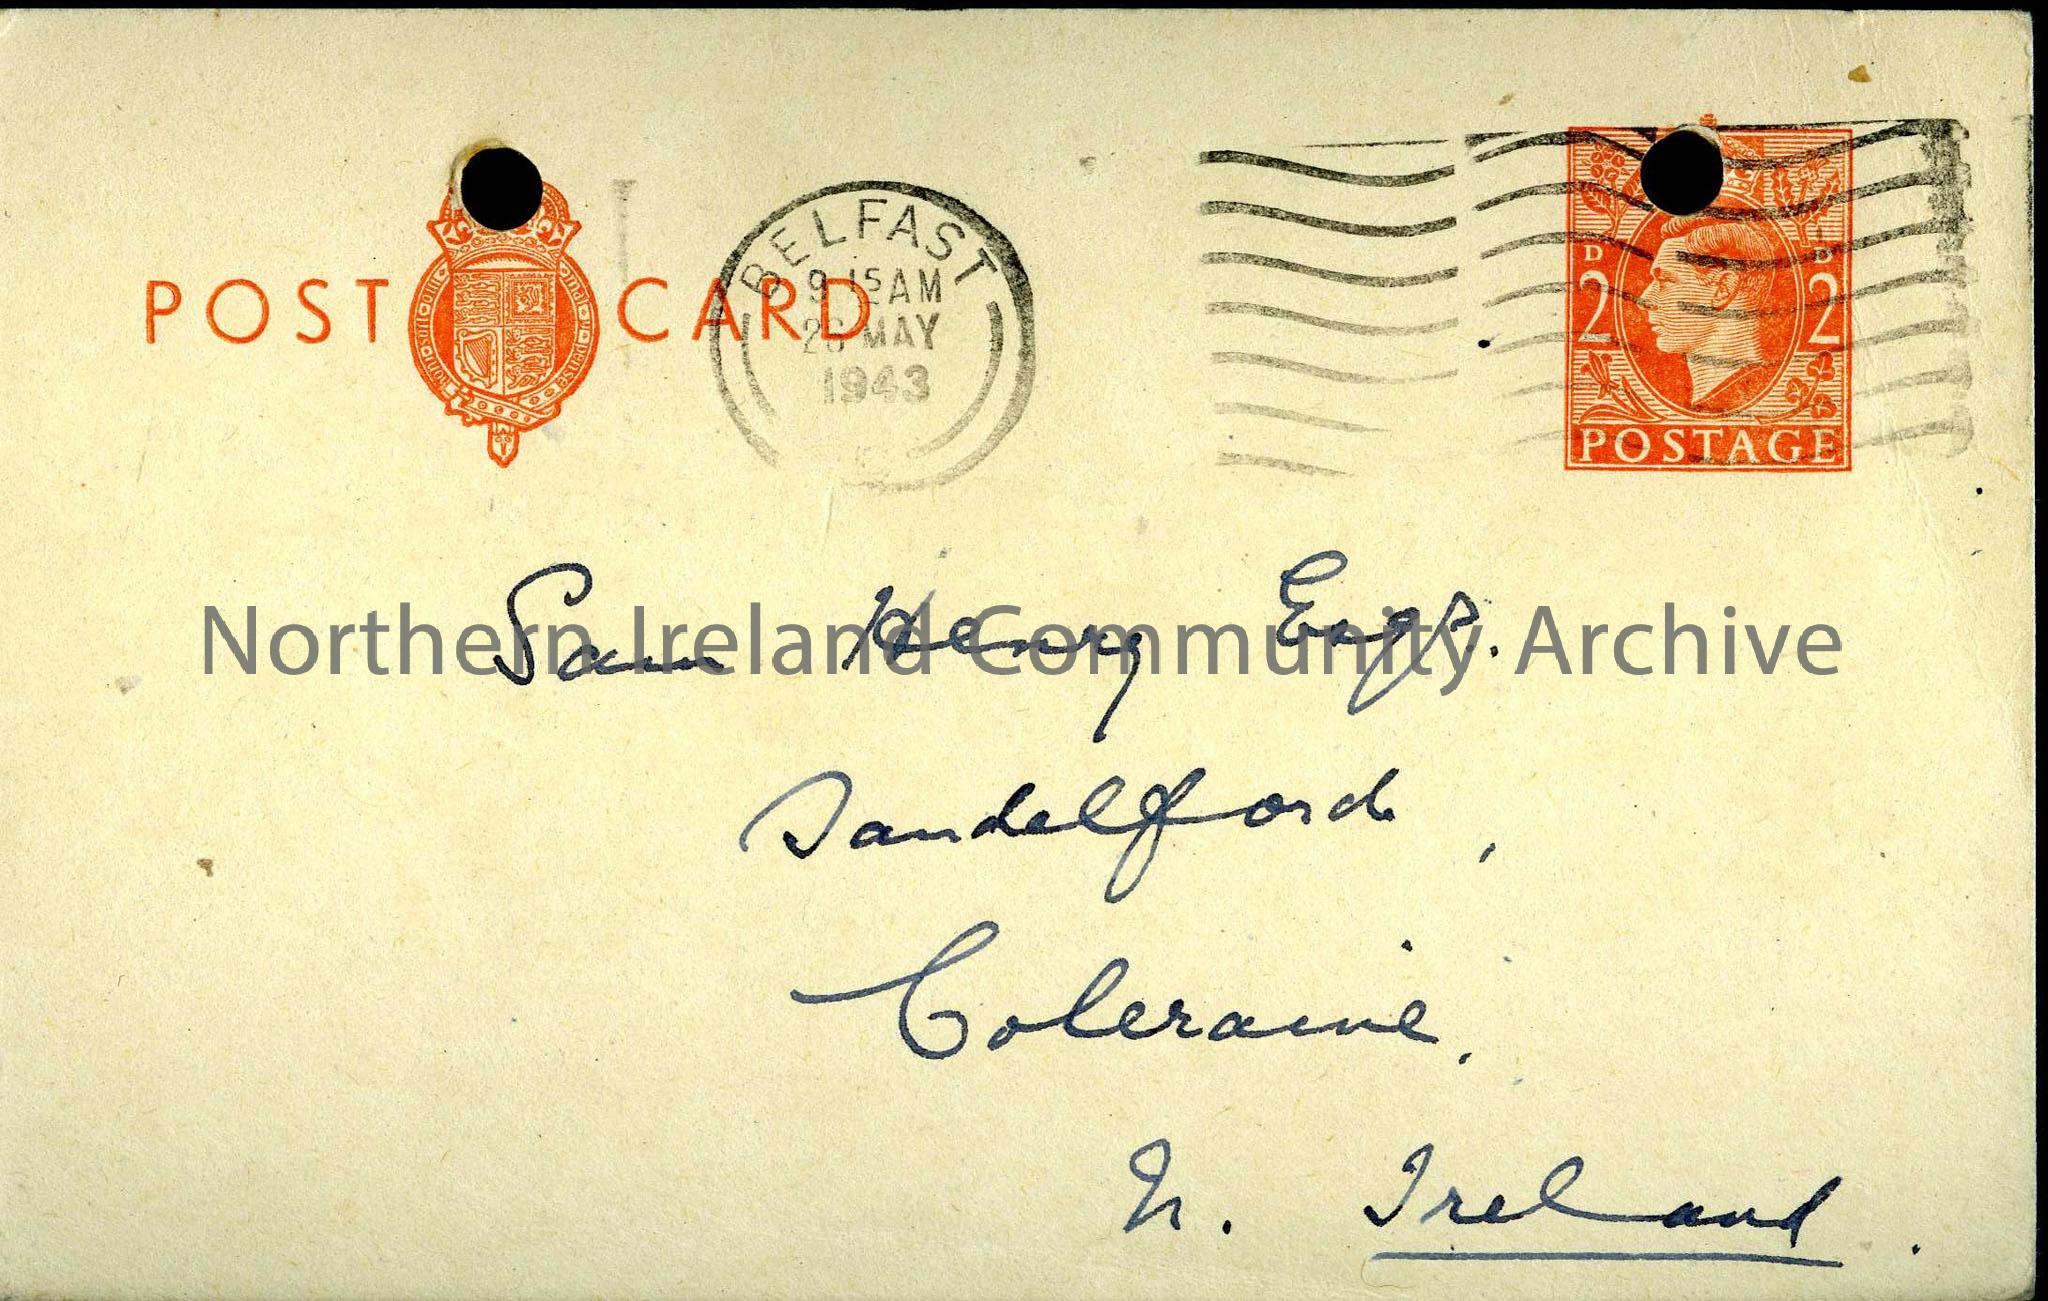 POST CARD
BELFAST
9 15 AM
MAY
1943
D D
2 2
POSTAGE
Northern Ireland Community Archive
Sam Henry Esqr.
Sandelford,
Coleraine.
N. Ireland.